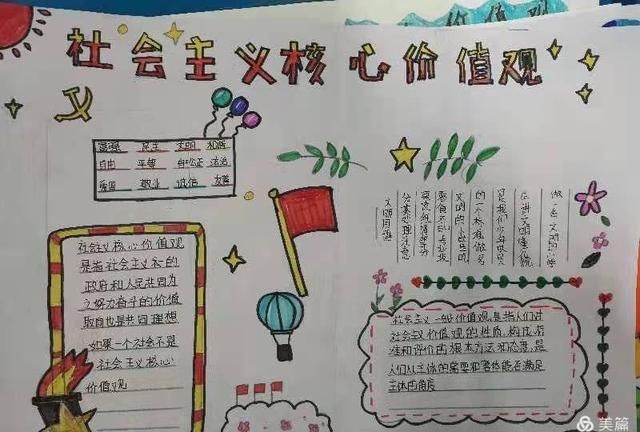 价值观
社会主义核心价值观
富强 民主 文明 和谐
自由 平等 公正 法治
爱国 敬业 诚信 友善
做一名文明的小学
生,讲文明懂礼貌
是我们少年队员
的一个标准,做名
文明的小学生
文明同遵
社会主义核心价值观
是指社会主义
政府和人民共同为
之努力奋斗的价值
取向也是共同理想
如果一个社会不是
社会主义核心
价值观
社会主义 价值观,是指人们对
社会主义价值观的性质、构成、标
准和评价的根本方法和态度,是
人们从主体的需要和客体能否满足
主体的角度
美篇